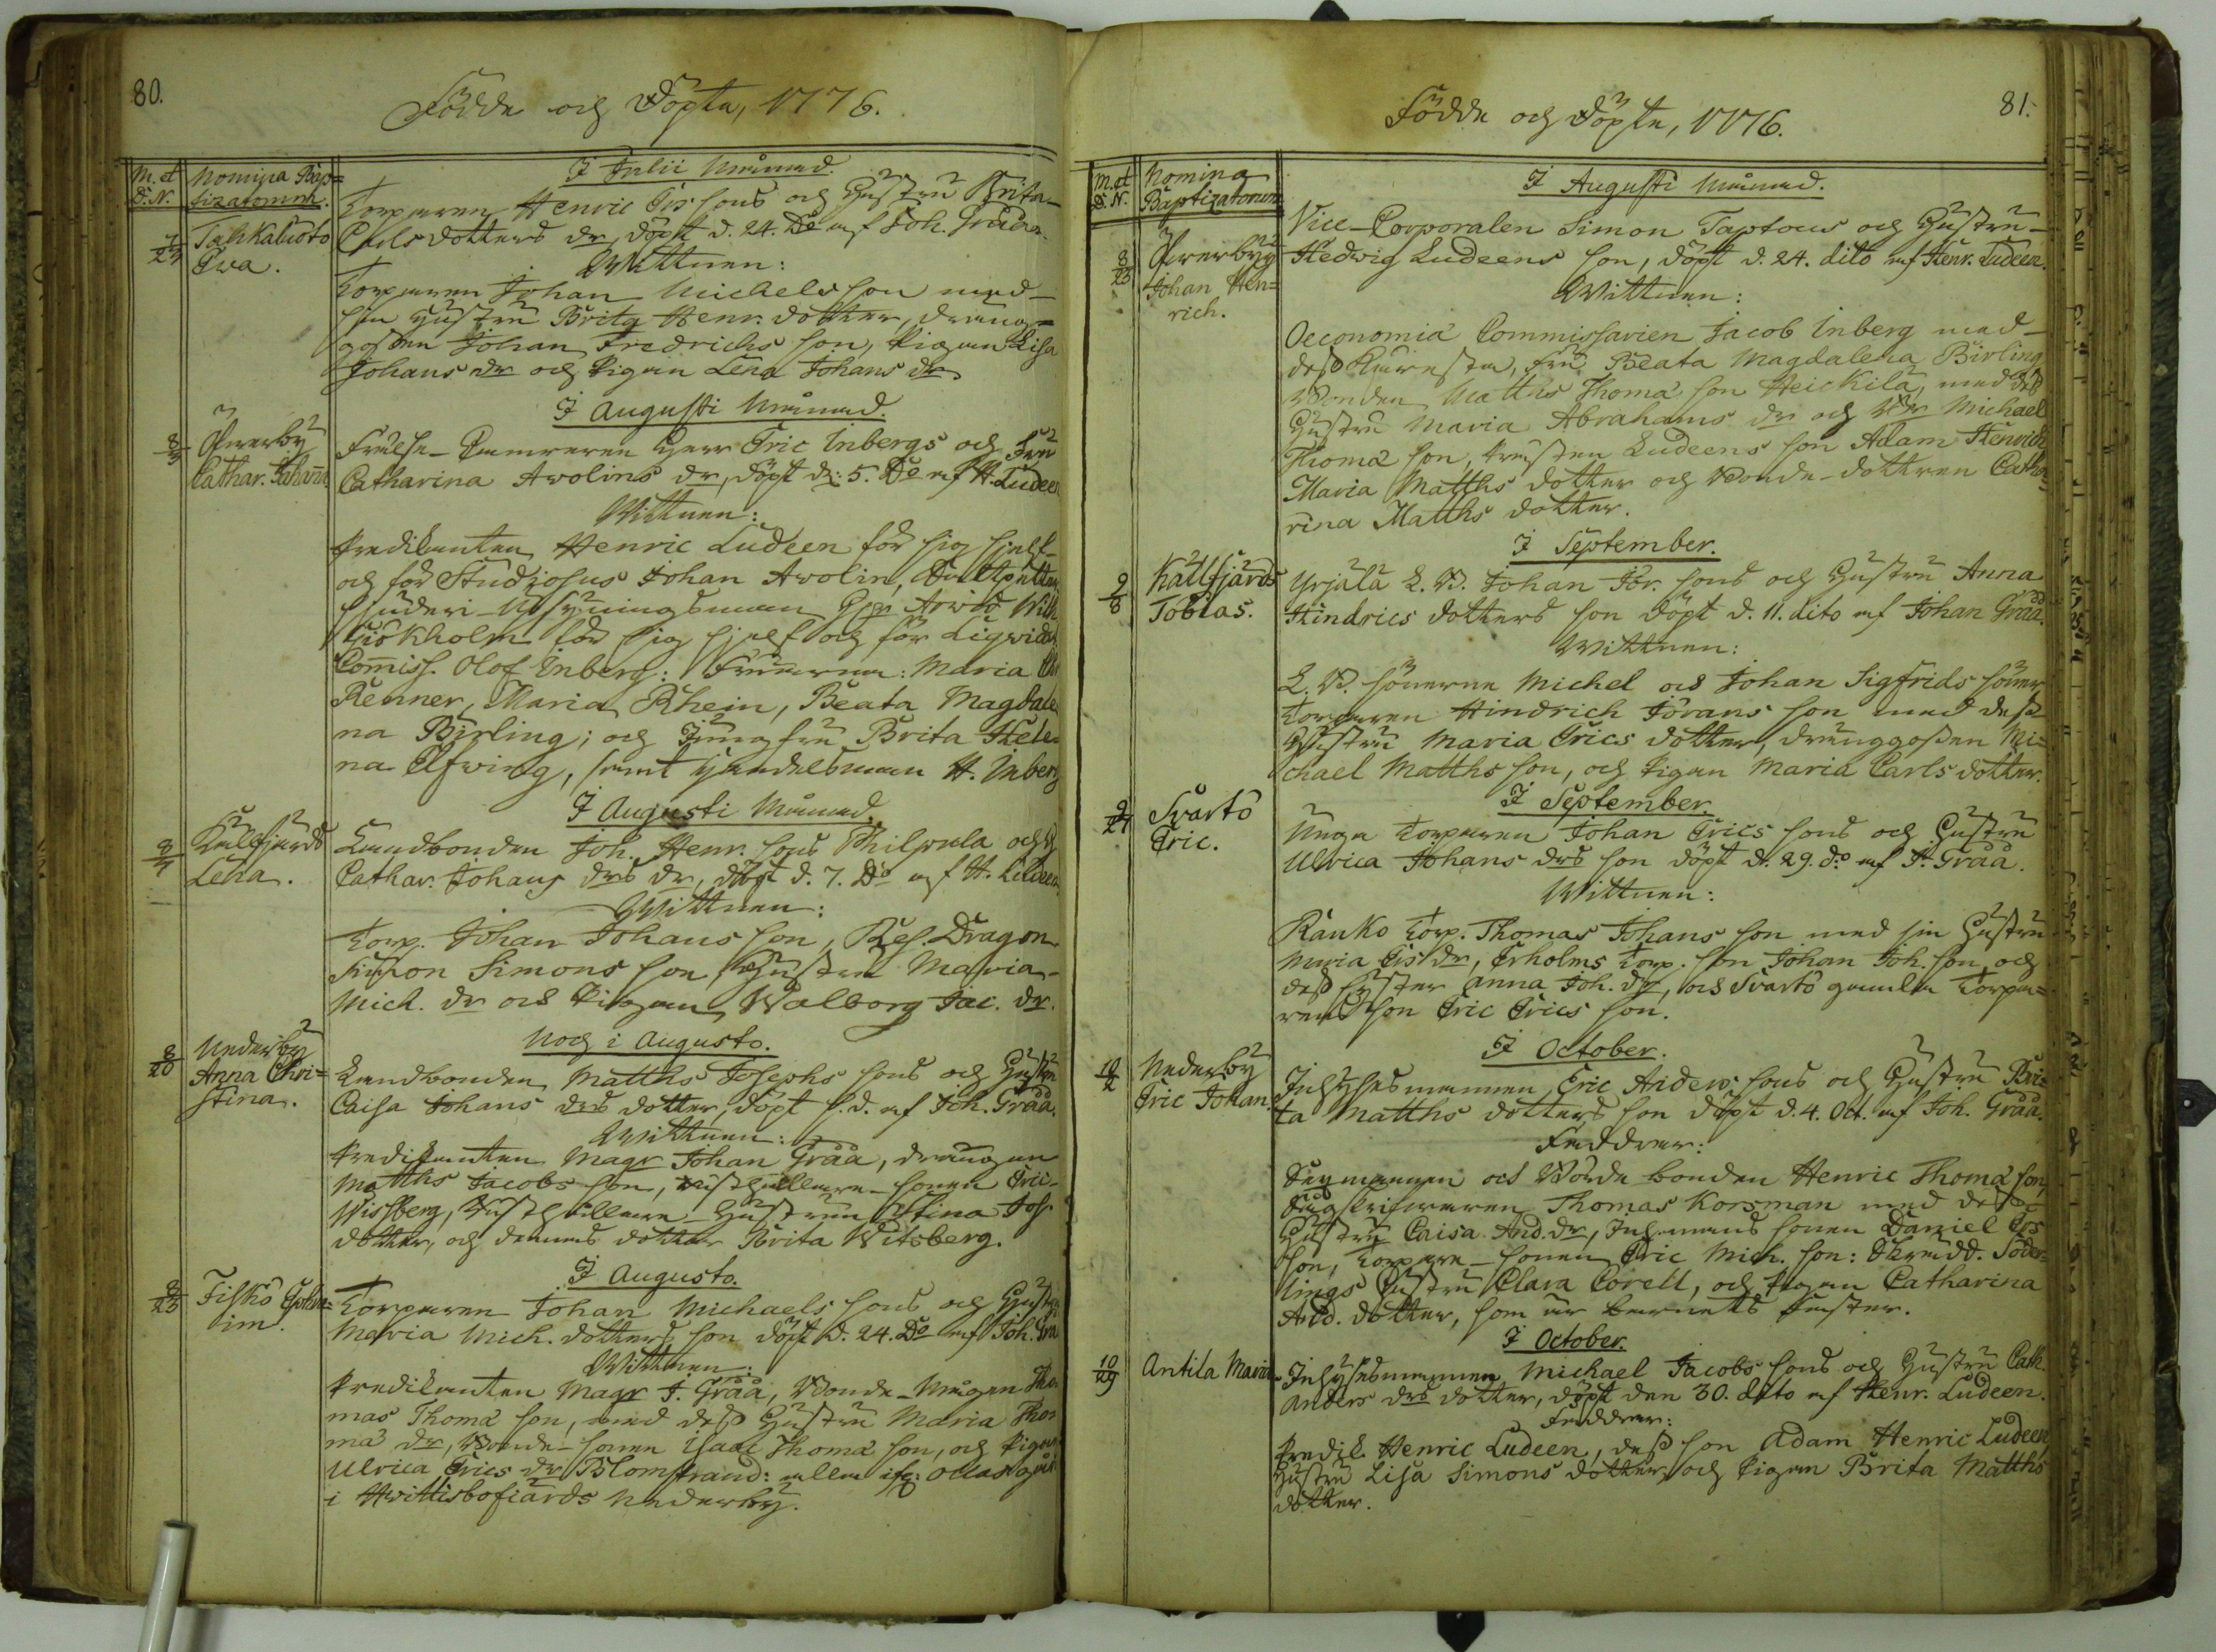 80.
Födde och Döpte, 1776.
M. et D. N.
Nomina Bap=
tizatorum.
I Julii Månad.
7/23
Tahkaluoto
Eva.
Torparen Henric Ers sons och Hustru Brita
Carls dotters dr, döpt d. 24. Do af Joh. Gråå.
Wittnen:
Torparen Johan Michels son med
sin Hustru Brita Henr. dotter, dräng=
gossen Johan Fredrichs son, Pigan Lisa
Johans dr och Pigan Lena Johans dr.
I Augusti Månad.
8/3
Öfverby
Cathar. Johanna
Frälse-Camreren Herr Eric Inbergs och Fru
Catharina Avolins dr, döpt d: 5. De af H. Ludeen
Wittnen:
Predikanten Henric Ludeen för sig sjelf
och för Studiosus Johan Avolin,
Arwid Will.
Giökholm för sig sjelf och för Liqvid.
Com̄iss. Olof Inberg: Fruarna: Maria
Renner, Maria Rhein, Beata Magdale
na Birling; och Jungfru Brita Hele
na Elfwing, samt Handelsman H. Inberg
I Augusti Månad.
8/7
Källfjärd
Lena.
Landbonden Joh. Henr. sons Philpula och H.
Cathar. Johans drs dr, döpt d. 7. Do af H. Ludeen
Wittnen:
Torp. Johan Johans son, Res. Dragon
Simon Simons son, Hustru Maria
Mich. dr och Pigan Walborg Jac. dr.
Noch i Augusto.
8/20
Nederby
Anna Chri=
stina.
Landbonden Matths Josephs sons och Hustru
Caisa Johans drs dotter, döpt s. d. af Joh. Gråå.
Wittnen:
Predikanten Magr Johan Gråå, drängen
Matths Jacobs son, Rusthållare-sonen Eric
Wissberg, Rusthållare-Hustrun Stina Jos.
dotter, och dennes dotter Brita Witsberg.
I Augusto.
8/23
Fiskö Ephra=
im.
Torparen Johan Michaels sons och Hustru
Maria Mich. dotters son döpt d. 24. Do af Joh. Grå
Wittnen:
Predikanten Magr J. Gråå, Bonde-Mågen Tho
mas Thomæ son, med dess Hustru Maria Tho
mæ dr, Bonde-sonen Isaac Thomæ son, och Pigan
Ulrica Erics dr Blomstrand: alla
i Hvittisbofiärds Nederby.
81.
Födde och Döpte, 1776.
M. et D. N.
Nomina
Baptizatorum
I Augusti Månad.
8/23
Öfwerby
Johan Hen=
rich.
Vice-Corporalen Simon Taptous och Hustru
Hedwig Ludeens son, döpt d. 24. dito af Henr. Ludeen.
Wittnen:
Oeconomiæ Commissarien Jacob Inberg med
dess Käresta, Fru Beata Magdalena Birling
Bonden Matths Thomæ son Heickilä, med dess
Hustru Maria Abrahams dr och Br Michael
Thomæ son, Prästen Ludeens son Adam Henrich
Maria Matths dotter och Bonde-dottren Catha=
rina Matths dotter.
I September.
9/8
Källfjärds
Tobias.
Yrjälä L. B. Johan Jör. sons och Hustru Anna
Hindrics dotters son döpt d. 11. dito af Johan Gråå.
Wittnen:
L. B. sönerne Michel och Johan Sigfrids söner,
Torparen Hindrich Jörans son med dess
Hustru Maria Erics dotter, dränggossen Mi=
chael Matths son, och Pigan Maria Carls dotter.
I September.
9/27
Svartö
Eric.
Unga Torparen Johan Erics sons och Hustru
Ulrica Johans drs son döpt d. 29. do af J. Gråå.
Wittnen:
Räuko Torp. Thomas Johans son med sin Hustru
Maria Ers dr, Erholms Torp. son Johan Joh. son och
dess syster Anna Joh. dr, och Svartö gamla Torpa=
rens son Eric Erics son.
I October.
10/2
Nederby
Eric Johan.
Inhysesmannen Eric Anders sons och Hustru Bri=
ta Matths dotters son döpt d. 4. Oct. af Joh. Gråå.
Faddrar:
och Börde bonden Henric Thomæ son,
Thomas Korsman med dess
Hustru Caisa And. dr, Inh.mans sonen Daniel Ers
son, Torpare-sonen Eric Mich. son: Söder=
lings Hustru Clara Corell, och Pigan Catharina
And. dotter, som är barnets Faster.
I October.
10/29
Antila Maria
Inhysesmannen Michael Jacobs sons och Hustru Cath.
Anders drs dotter, döpt den 30. dito af Henr. Ludeen.
Faddrar:
Predik. Henric Ludeen, dess son Adam Henric Ludeen
Hustru Lisa Simons dotter och Pigan Brita Matths
dotter.